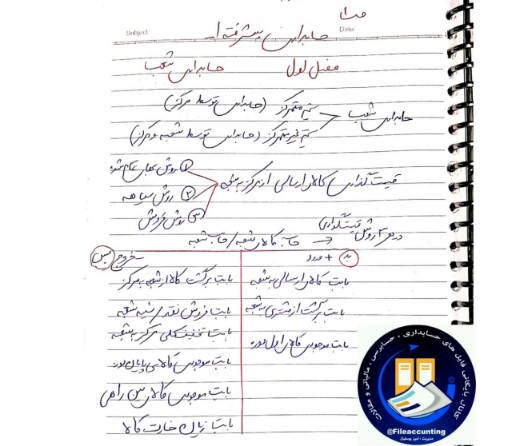 Subject:
Date
حسابداری پیشرفته ۱
فصل اول حسابداری شعب
حسابداری شعب
سیستم متمرکز (حسابداری توسط مرکز)
سیستم غیرمتمرکز (حسابداری توسط شعبه و مرکز)
قیمت گذاری کالای ارسالی از مرکز به شعبه
① روش بهای تمام شده
② روش سیاهه
③ روش فروش
در هر ۳ روش قیمتگذاری ← حساب کالای شعبه / حساب شعبه
بد + ورود
بابت کالای ارسالی به شعبه
بابت برگشت از مشتری به شعبه
بابت موجودی کالا اول دوره
- خروج بس
بابت برگشت کالا از شعبه به مرکز
بابت فروش نقد / نسیه شعبه
بابت موجودی کالای پایان دوره
بابت موجودی کالا بین راهی
بابت زیان خسارت کالا
کانال بایگانی فایل های حسابداری ، حسابرسی ، مالیاتی و
@Fileaccunting